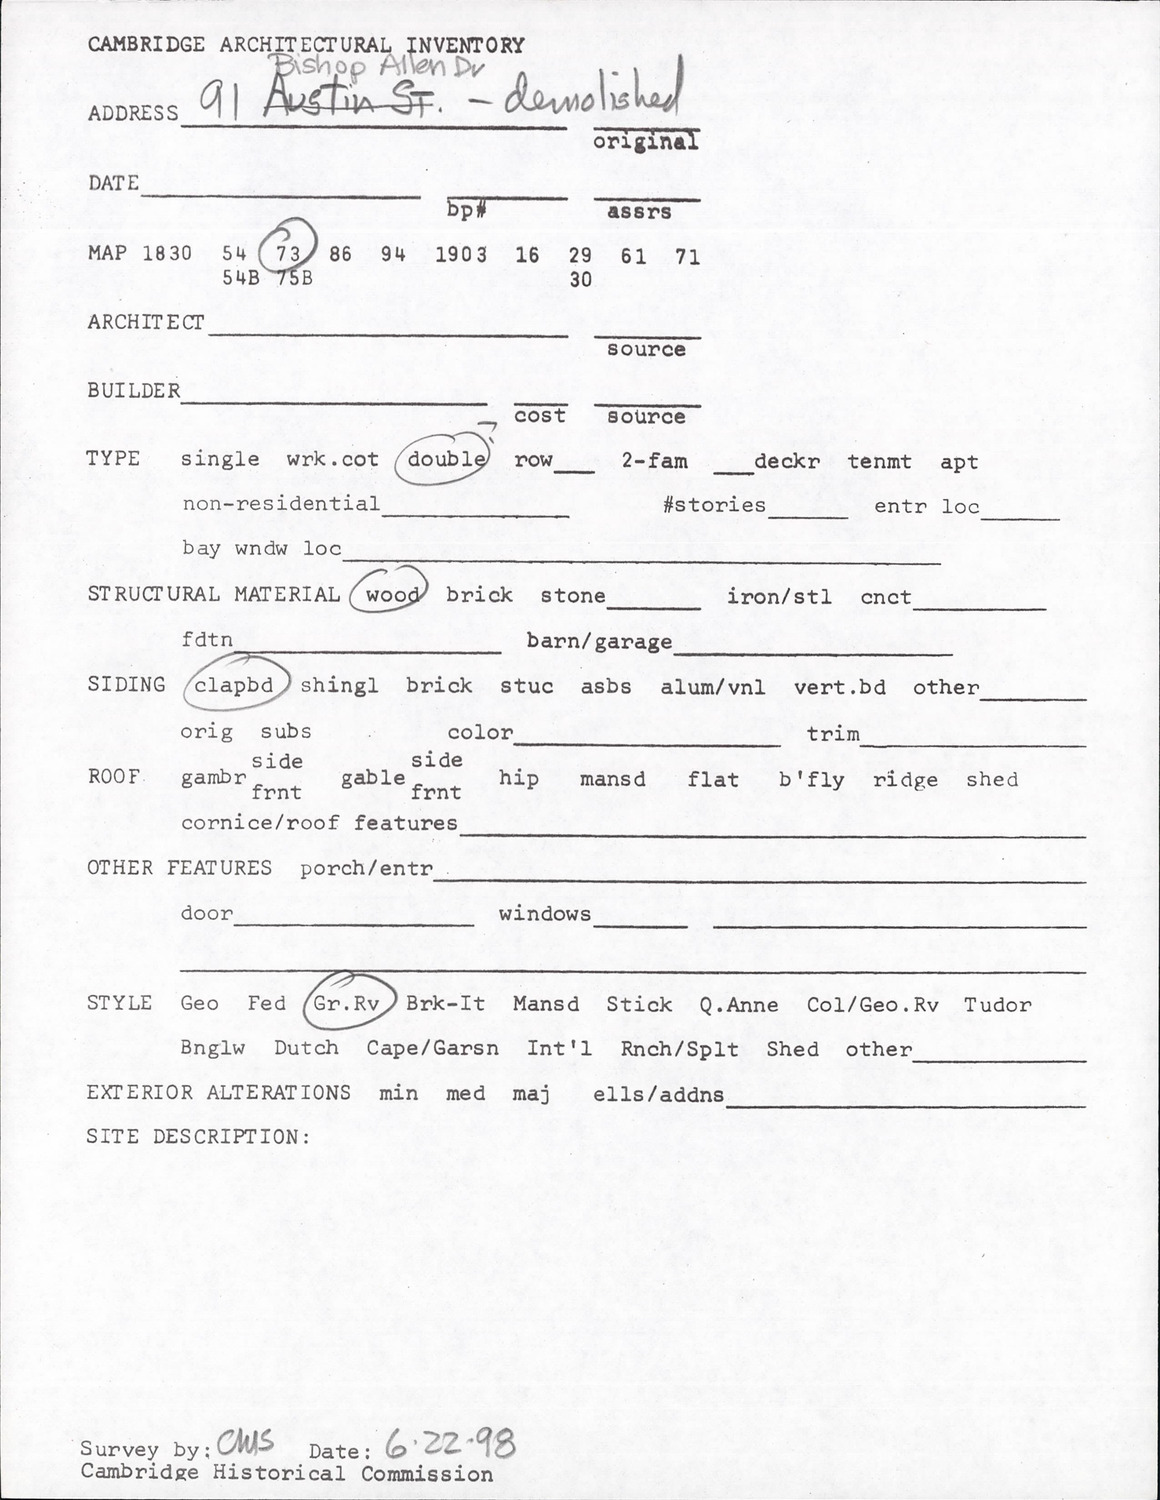 CAMBRIDGE ARCHITECTURAL INVENTORY
Bishop Allen Dr
ADDRESS 91 Austin St. - demolished
original
DATE
bp# assrs
MAP 1830 54 73 86 94 1903 16 29 61 71
54B 75B 30
ARCHITECT
source
BUILDER
cost source
TYPE single wrk.cot double row___ 2-fam ___deckr tenmt apt
non-residential #stories entr loc
bay wndw loc
STRUCTURAL MATERIAL wood brick stone iron/stl cnct
fdtn barn/garage
SIDING clapbd shingl brick stuc asbs alum/vnl vert.bd other
orig subs color trim
side side
ROOF gambr gable hip mansd flat b'fly ridge shed
frnt frnt
cornice/roof features
OTHER FEATURES porch/entr
door windows
STYLE Geo Fed Gr.Rv Brk-It Mansd Stick Q.Anne Col/Geo.Rv Tudor
Bnglw Dutch Cape/Garsn Int'l Rnch/Splt Shed other
EXTERIOR ALTERATIONS min med maj ells/addns
SITE DESCRIPTION:
Survey by: CMS Date: 6·22·98
Cambridge Historical Commission